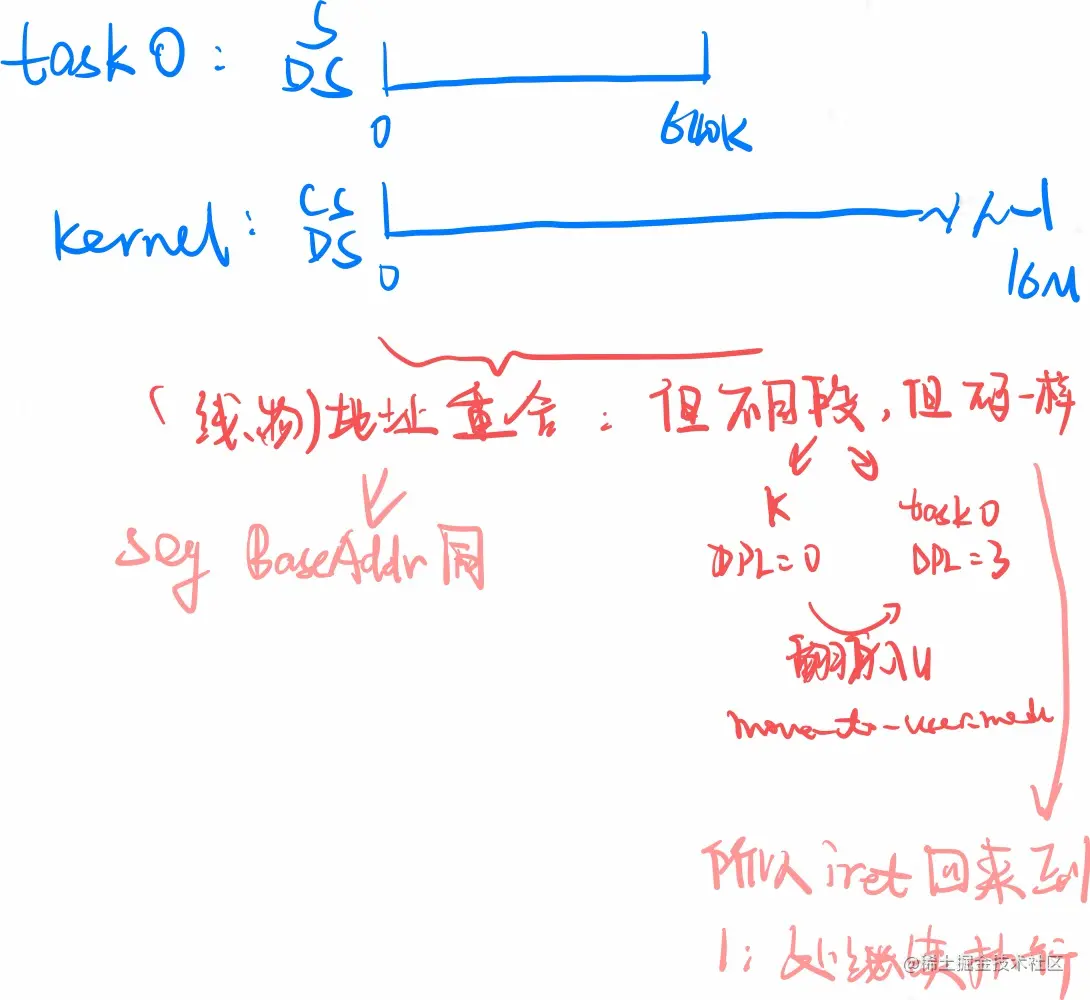 task 0：
S
DS
0
640K
kernel：
CS
DS
0
16M
（线、物）地址重合：但不同段，但码一样
K
task 0
DPL=0
DPL=3
seg BaseAddr同
翻身入U
move-to-user-mode
所以 iret 回来到
1：处继续执行
@稀土掘金技术社区